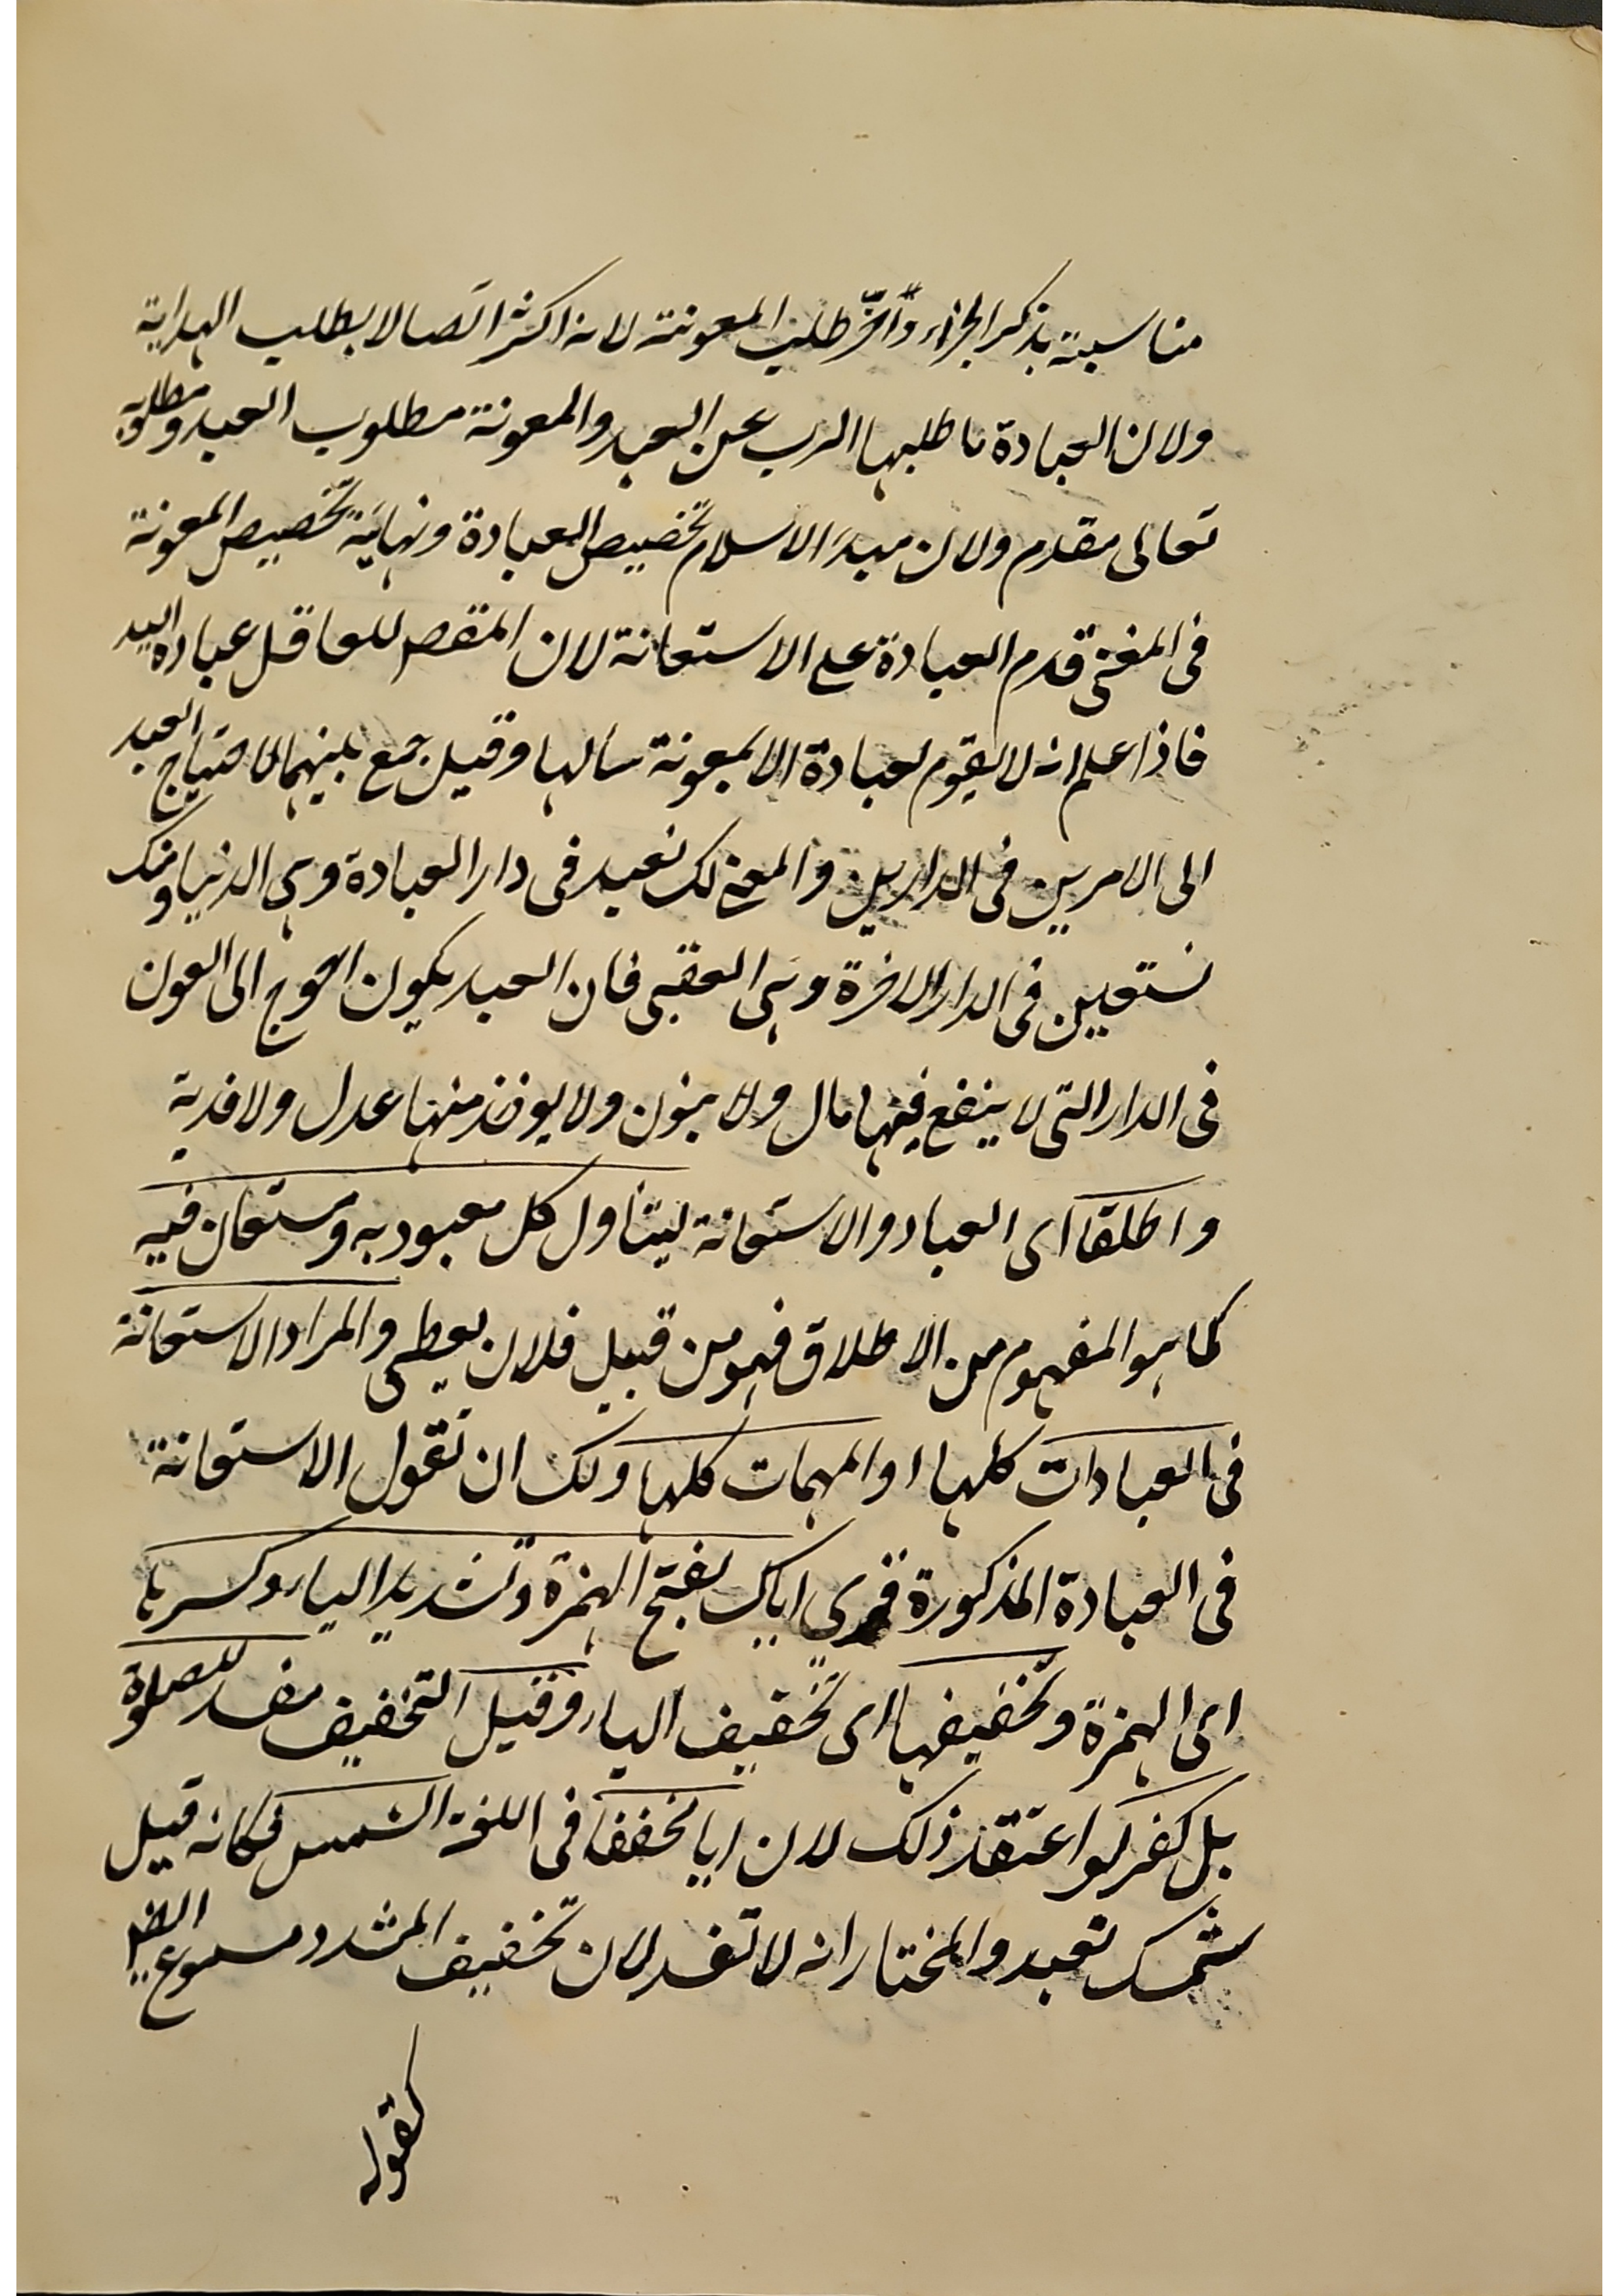 مناسبة بذكر الجزاء وأخّر طلب المعونة لانه اكثر اتصالا بطلب الهداية
ولان العبادة ما طلبها الرب عن العبد والمعونة مطلوب العبد ومطلوبه
تعالى مقدم ولان مبدَا الاسلام تخصيص العبادة ونهايَة تخصيص المعونة
فى المغنى قدم العبادة على الاستعانة لان المقص للعاقل عباده
فاذا علم انه لا يقوم لعبادة الا بمعونة سألها وقيل جمع بينهما لاحتياج العبد
الى الامرين فى الدارين والمعنى لك نعبد فى دار العبادة وهى الدنيا ومنك
نستعين فى الدار الاخرة وهى العقبى فان العبد يكون احوج الى العون
فى الدار التى لا ينفع فيها مال ولا بنون ولا يوخذ منها عدل ولا فدية
واطلقا اى العباد والاستعانة ليتناول كل معبود به ومستعان فيه
كما هو المفهوم من الاطلاق فهو من قبيل فلان يعطى والمراد الاستعانة
فى العبادات كلها او المهمات كلها ولك ان تقول الاستعانة
فى العبادة المذكورة قرى اياك بفتح الهمزة وتشديد الياء وكسرها
اى الهمزة وتخفيفها اى تخفيف الياء وقيل التخفيف مفسد للصلوة
بل كفر لو اعتقد ذلك لان ايا مخففا فى اللغة الشمس فكانه قيل
شمسك نعبد والمختار انه لا تفسد لان تخفيف المشدد مسموع
كقوله